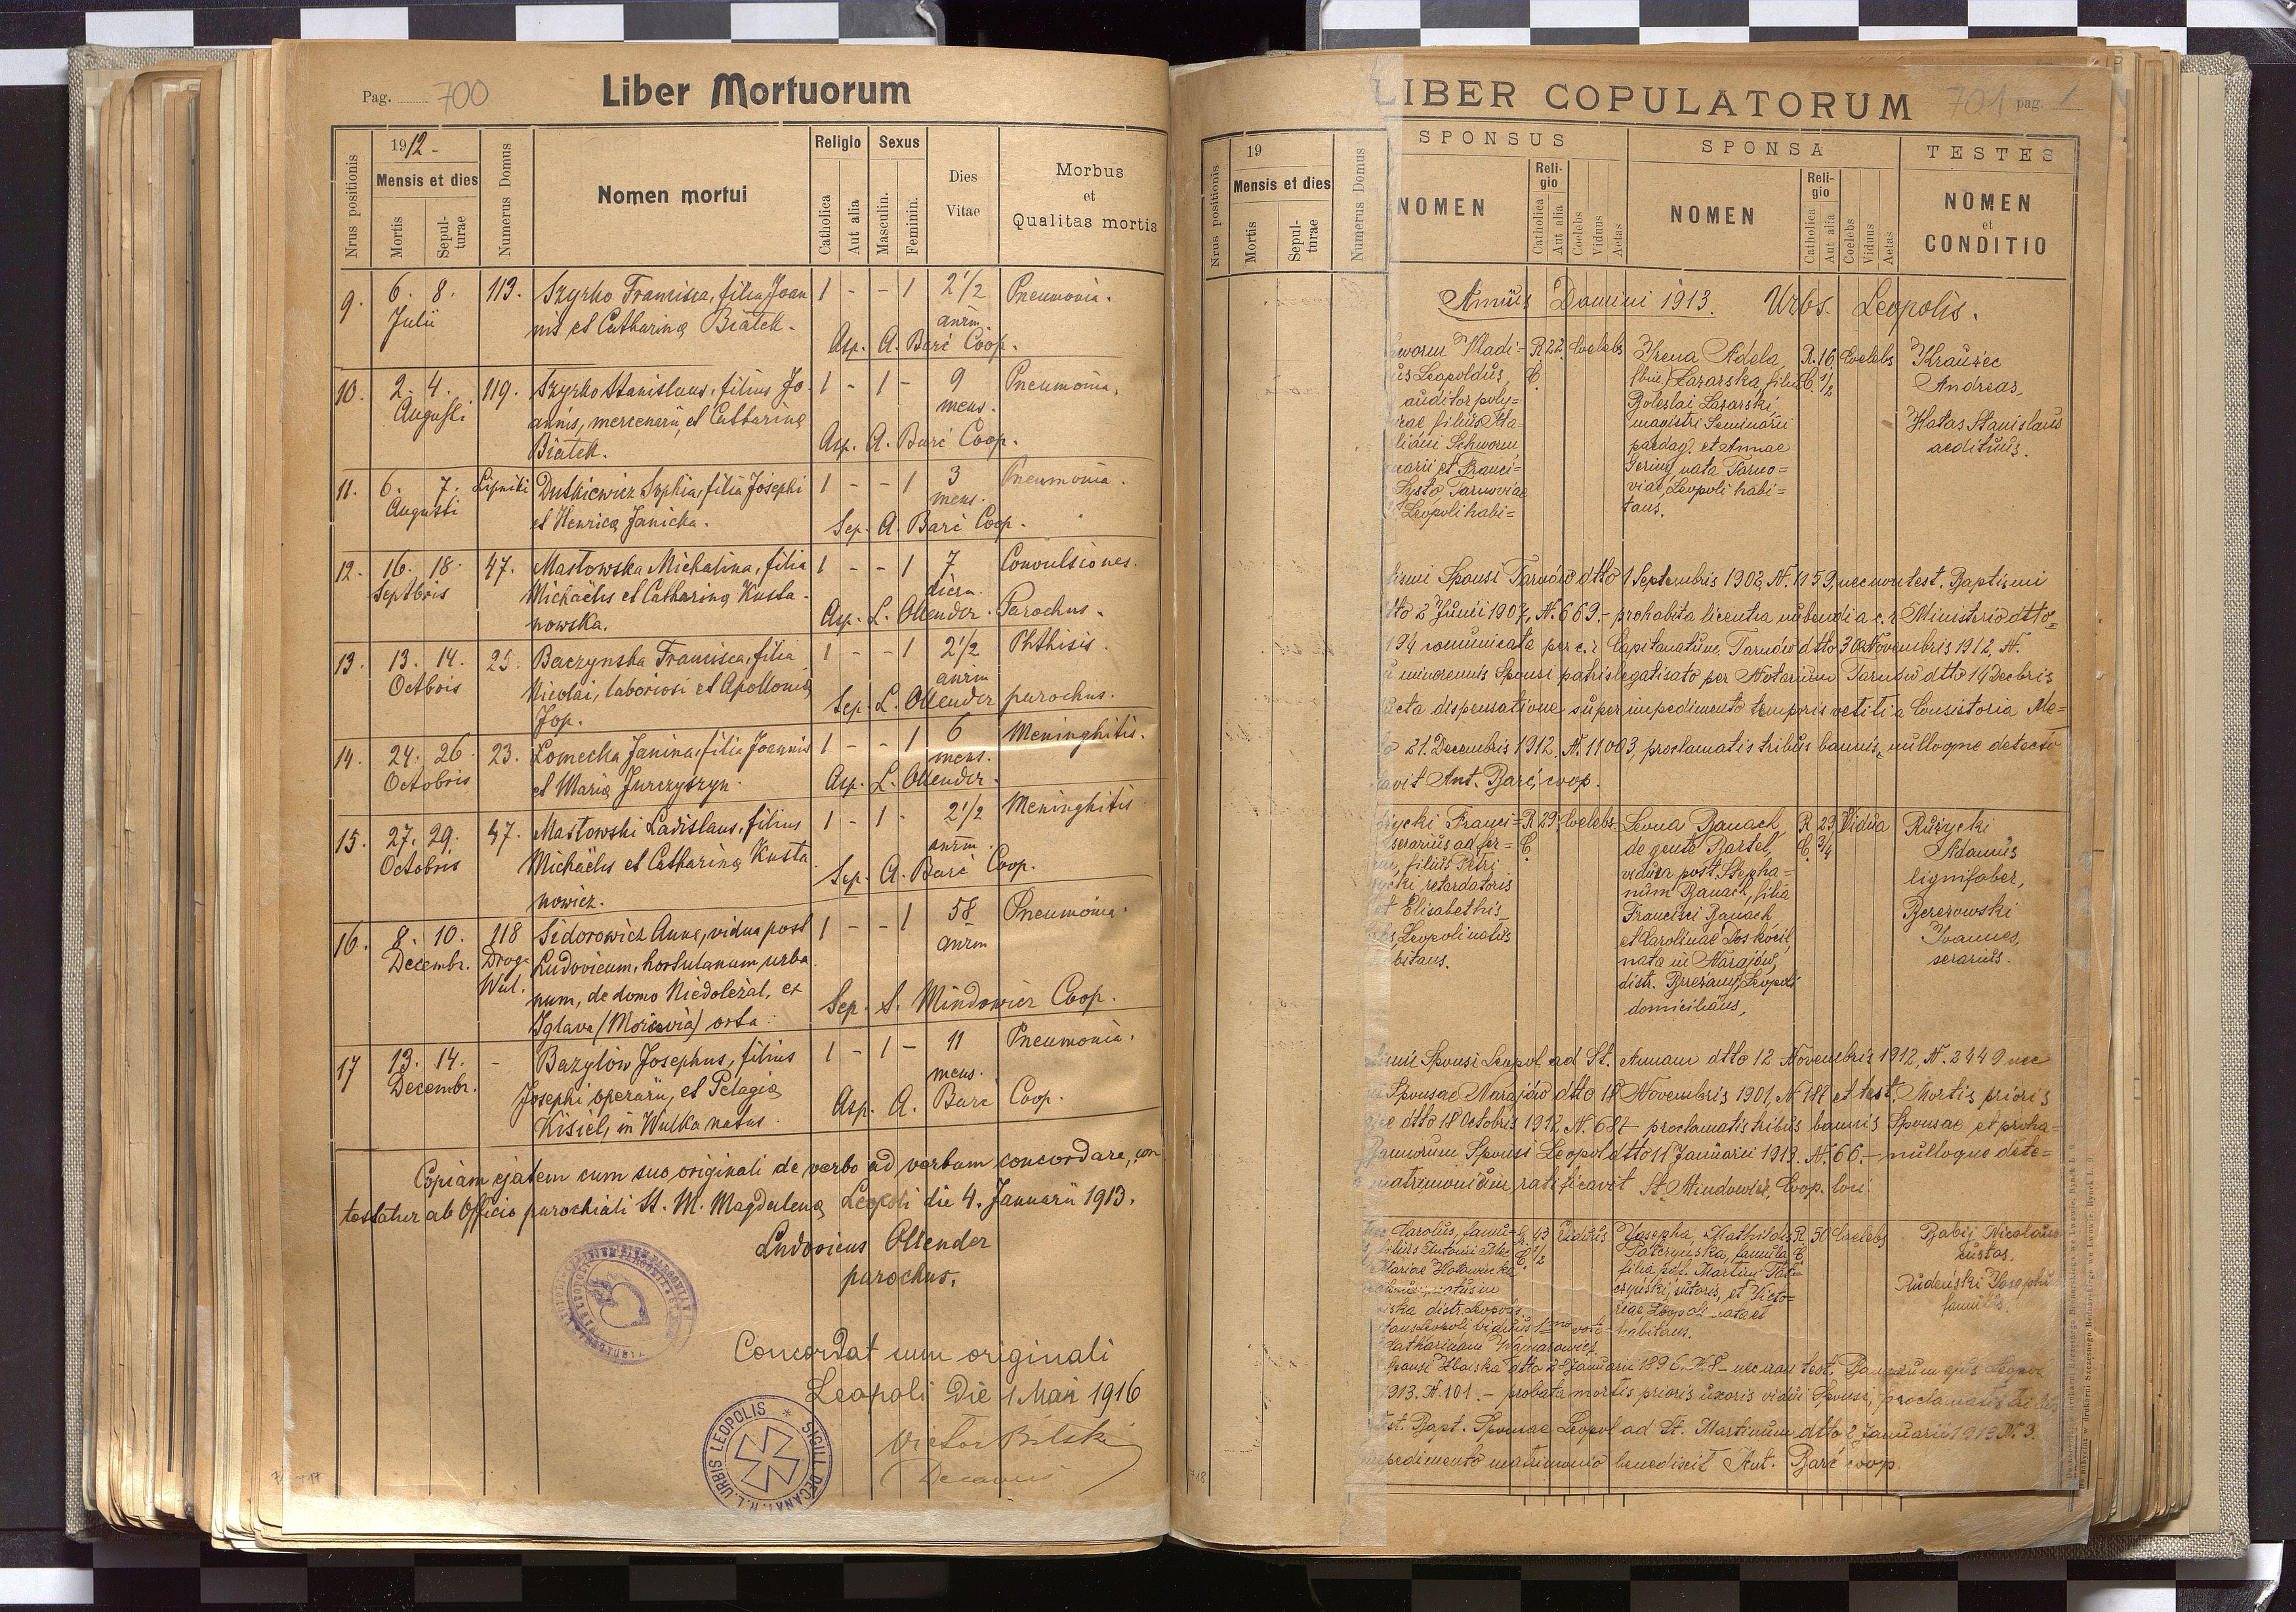 Pag. 700
Liber Mortuorum
Nrus positionis
1912
Mensis et dies
Mortis
Sepulturae
Numerus Domus
Nomen mortui
Religio
Catholica
Aut alia
Sexus
Masculin.
Feminin.
Dies
Vitae
Morbus
et
Qualitas mortis
9. 6. 8. 113. Szyrko Francisca, filia Joan 1 - - 1 2 1/2 Pneumonia.
Julii nis et Catharina Białek. annm.
Asp. A. Barć Coop.
10. 2. 4. 119. Szyrko Stanislaus, filius Jo 1 - 1 - 9 Pneumonia,
Augusti annis, mercenarii, et Catharina mens.
Białek. Asp. A. Barć Coop.
11. 6. 7. Lipniki Dutkiewicz Sophia, filia Josephi 1 - - 1 3 Pneumonia.
Augusti et Henrica Janicka. mens.
Sep. A. Barć Coop.
12. 16. 18. 47. Masłowska Michalina, filia 1 - - 1 7 Convulsiones.
Septbris Michaëlis et Catharina Kusta- dierm.
nowska. Asp. L. Ollender. Parochus.
13. 13. 14. 25. Baczynska Francisca, filia 1 - - 1 2 1/2 Phthisis.
Octbris Nicolai, laboriosi et Apollonia annm
Jop. Sep. L. Ollender parochus.
14. 24. 26. 23. Łomecka Janina, filia Joannis 1 - - 1 6 Meninghitis.
Octobris et Maria Jurczyszyn. mens.
Asp. L. Ollender.
15. 27. 29. 47. Masłowski Ladislaus, filius 1 - 1 - 2 1/2 Meninghitis
Octobris Michaëlis et Catharina Kusta annm.
nowicz. Sep. A. Barć Coop.
16. 8. 10. 118 Sidorowicz Anna, vidua post 1 - - 1 58 Pneumonia.
Decembr. Droga Ludovicum, hortulanum urba annm
Wul. num, de domo Niedoleżal, ex
Iglava (Moravia) orta. Sep. S. Mindowicz Coop.
17 13. 14. - Bazylów Josephus, filius 1 - 1 - 11 Pneumonia.
Decembr. Josephi operarii, et Pelagia mens.
Kisiel, in Wulka natus. Asp. A. Barć Coop.
Copiam ejatem cum suo originali de verbo ad verbum concordare, con
testatur ab Officio parochiali St. M. Magdalena Leopoli die 4. Januarii 1913.
Ludovicus Ollender
parochus.
Concordat cum originali
Leopoli Die 1 Maii 1916
Victor Bilski
Decanus
SIGILL. DECANAT. R. L. URBIS LEOPOLIS
Nrus positionis
19
Mensis et dies
Mortis
Sepulturae
Numerus Domus
718
LIBER COPULATORUM
701 pag. 1
SPONSUS
NOMEN
Religio
Catholica
Aut alia
Coelebs
Viduus
Aetas
SPONSA
NOMEN
Religio
Catholica
Aut alia
Coelebs
Viduus
Aetas
TESTES
NOMEN
et
CONDITIO
Annus Domini 1913. Urbs. Leopolis.
Vladi- R. 22 Coelebs Irena Adela, R. 16 Coelebs
us Leopoldus, C. (bin.) Łazarska, filia C. 1/2 Andreas,
auditor poly= Boleslai Łazarski,
filius magistri Seminarii Hatas Stanislaus
liani Schworm paedag. et Annae aedituus.
carii et Franci= Gering nata Tarno=
Tarnoviae viae, Leopoli habi=
Leopoli habi= tans.
tismi Sponsi Tarnów dtto 1 Septembris 1902, N. 1159, nec non test. Baptismi
tto 2 Junii 1907, N. 669.- prohabita licentia nubendi a c. r. Ministerio dtto=
194 comunicata per c. r. Capitanatum Tarnów dtto 30 Novembris 1912, N.
minorennis Sponsi patris legalisato per Notarium Tarnów dtto 14 Decbris
dispensatione super impedimento temporis vetiti a Consistorio Me=
21. Decembris 1912. N. 11003, proclamatis tribus bannis, nulloque detecto
Ant. Barć, coop.
Franci= R. 29. Coelebs Banach, R 23 Vidua Ružycki
serarius ad fer= C. de gente Bartel, C. 3/4 Adamus
filius Petri vidua post Stepha= lignifaber,
retardatoris num Banach, filia Berezowski
et Elisabethis Francisci Banach, Ioannes,
Leopoli natus et Carolinae Doskócil, serarius.
bitans. nata in Narajów,
distr. Brzeżany, Leopoli
domicilians,
Sponsi Leopol. ad St. Annam dtto 12 Novembris 1912, N. 2449 nec
Sponsae Narajów dtto 18 Novembris 1901, N. 187 et test. Mortis prioris
dtto 18 Octobris 1912 N. 687 - proclamatis tribus bannis Sponsae et proha=
Bannorum Sponsi Leopol dtto 11 Januarii 1913. N. 66.- nulloque dete=
matrimonium ratificavit St. Mindowicz, Coop. loci
Carolus, famu- R. 43 Viduus Josepha, Mathildis R. 50 Coelebs Babij Nicolaus
filius Antonii C. 1/2 famula C. custos.
Mariae filia Martini Rudeński Josephus
natus in sutoris, et Victo= famulus.
distr. Leopoli. riae Leopoli nata et
Leopoli viduus 1mo voti habitans.
Catharinam
Sponsi dtto 28 Januarii 1896. N. 8 - nec non test. Bannorum ejus Leopol
1913. N. 101. - probata mortis prioris uxoris vidui Sponsi, proclamatis tribus
test. Bapt. Sponsae Leopol ad St. Martinum dtto 2 Januarii 1913 N. 3.
impedimento matrimonio benedixit Ant. Barć coop.